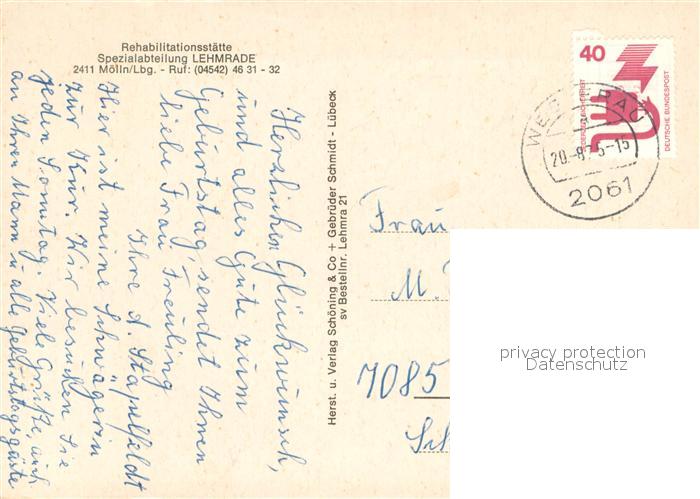 Rehabilitationsstätte
Spezialabteilung LEHMRADE
2411 Mölln/Lbg. - Ruf: (04542) 46 31 - 32
Herzlichen Glückwunsch,
und alles Gute zum
Geburtstag, sendet Ihnen
liebe Frau Freuling
Ihre A. Stapelfeldt
Hier ist meine Schwägerin
zur Kur. Wir besuchen Sie
jeden Sonntag. Viele Grüße, auch
an Ihren Mann u alle Geburtstagsgäste
Herst. u. Verlag Schöning & Co + Gebrüder Schmidt - Lübeck
sv Bestellnr. Lehmra 21
40
DEUTSCHE BUNDESPOST
20.-8.
-15
2061
Frau
M.
7085
privacy protection
Datenschutz